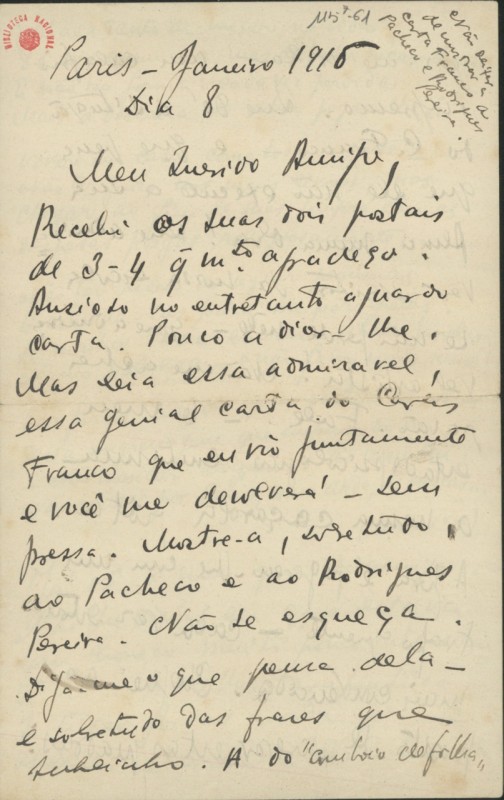 BIBLIOTECA NACIONAL
115⁵-61
Não deixe
de mostrar a
carta Franco a
Pacheco e Rodrigues
Pereira.
Paris – Janeiro 1916
Dia 8
Meu Querido Amigo,
Recebi os seus dois postais
de 3-4 q̃ m.to agradeço.
Ansioso no entretanto aguardo
carta. Pouco a dizer-lhe.
Mas leia essa admiravel,
essa genial carta do Carlos
Franco que envio juntamente
e você me devolverá – sem
pressa. Mostre-a, sobretudo,
ao Pacheco e ao Rodrigues
Pereira. Não se esqueça.
Diga-me o que pensa dela –
e sobretudo das frases que
sublinho. A do "comboio de folha"